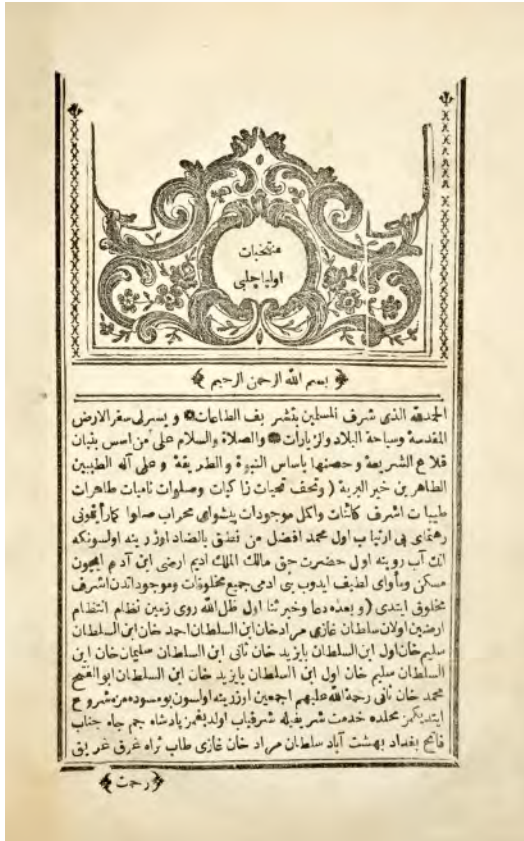 منتخبات
اوليا چلبی
بسم الله الرحمن الرحيم
الحمدلله الذی شرف المسلمين بتشريف الطاعات و يسرلی سفر الارض
المقدسة وسياحة البلاد والزيارات والصلاة والسلام علی من اسس بنيان
قلاع الشريعة وحصنها باساس النبوة و الطريقة و علی آله الطيبين
الطاهرين خير البرية ( وتحف تحيات زاكيات وصلوات ناميات طاهرات
طيبات اشرف كائنات واكمل موجودات پيشوای محراب صلوا كما رأيتمونی
رهنمای بی ارتياب اول محمد افضل من نطق بالضاد اوزرينه اولسونكه
آنك آب روينه اول حضرت حق مالك الملك اديم ارضی ابن آدم ايچون
مسكن ومأوای لطيف ايدوب بنی آدمی جميع مخلوقات وموجوداتدن اشرف
مخلوق ايتدی ( و بعده دعا وخير ثنا اول ظل الله روی زمين نظام انتظام
ارضين اولان سلطان غازی مراد خان ابن السلطان احمد خان ابن السلطان
سليم خان اول ابن السلطان بايزيد خان ثانی ابن السلطان سليمان خان ابن
السلطان سليم خان اول ابن السلطان بايزيد خان ابن السلطان ابو الفتح
محمد خان ثانی رحمة الله عليهم اجمعين اوزرينه اولسون بو مسوده مزه شروع
ايتديكمز محلده خدمت شريفيله شرفياب اولديغمز پادشاه جم جاه جناب
فاتح بغداد بهشت آباد سلطان مراد خان غازی طاب ثراه غرق غريق
رحمت